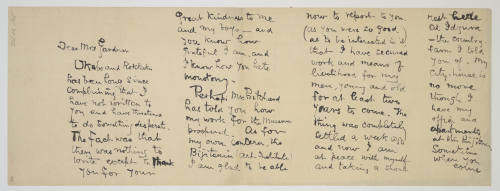 Dear Mrs Gardner
Okabe and Rokkaku
has been long since
complaining that I
have not written to
you and have threatened
to do something desperate.
The fact was that
there was nothing to
write except to thank
you for your
great kindness to me
and my boys — and
you know how
grateful I am, and
I know how you hate
monotony.
Perhaps Mr Pritchard
has told you how
my work for the Museum
prospered. As for
my own concern, the
Bijitsuin Art Institute
I am glad to be able
now to report to you
(as you were so good
as to be interested in it)
that I have secured
work and means of
livelihood for my
men, young and old
for at least two
years to come. The
thing was completely
settled a week ago
and now I am
at peace with myself
and taking a short
rest here
at Idzura
the country
farm I told
you of. My
city-house is
no more
though I
have my
office and
apartments
at the
Sometime
when you
come